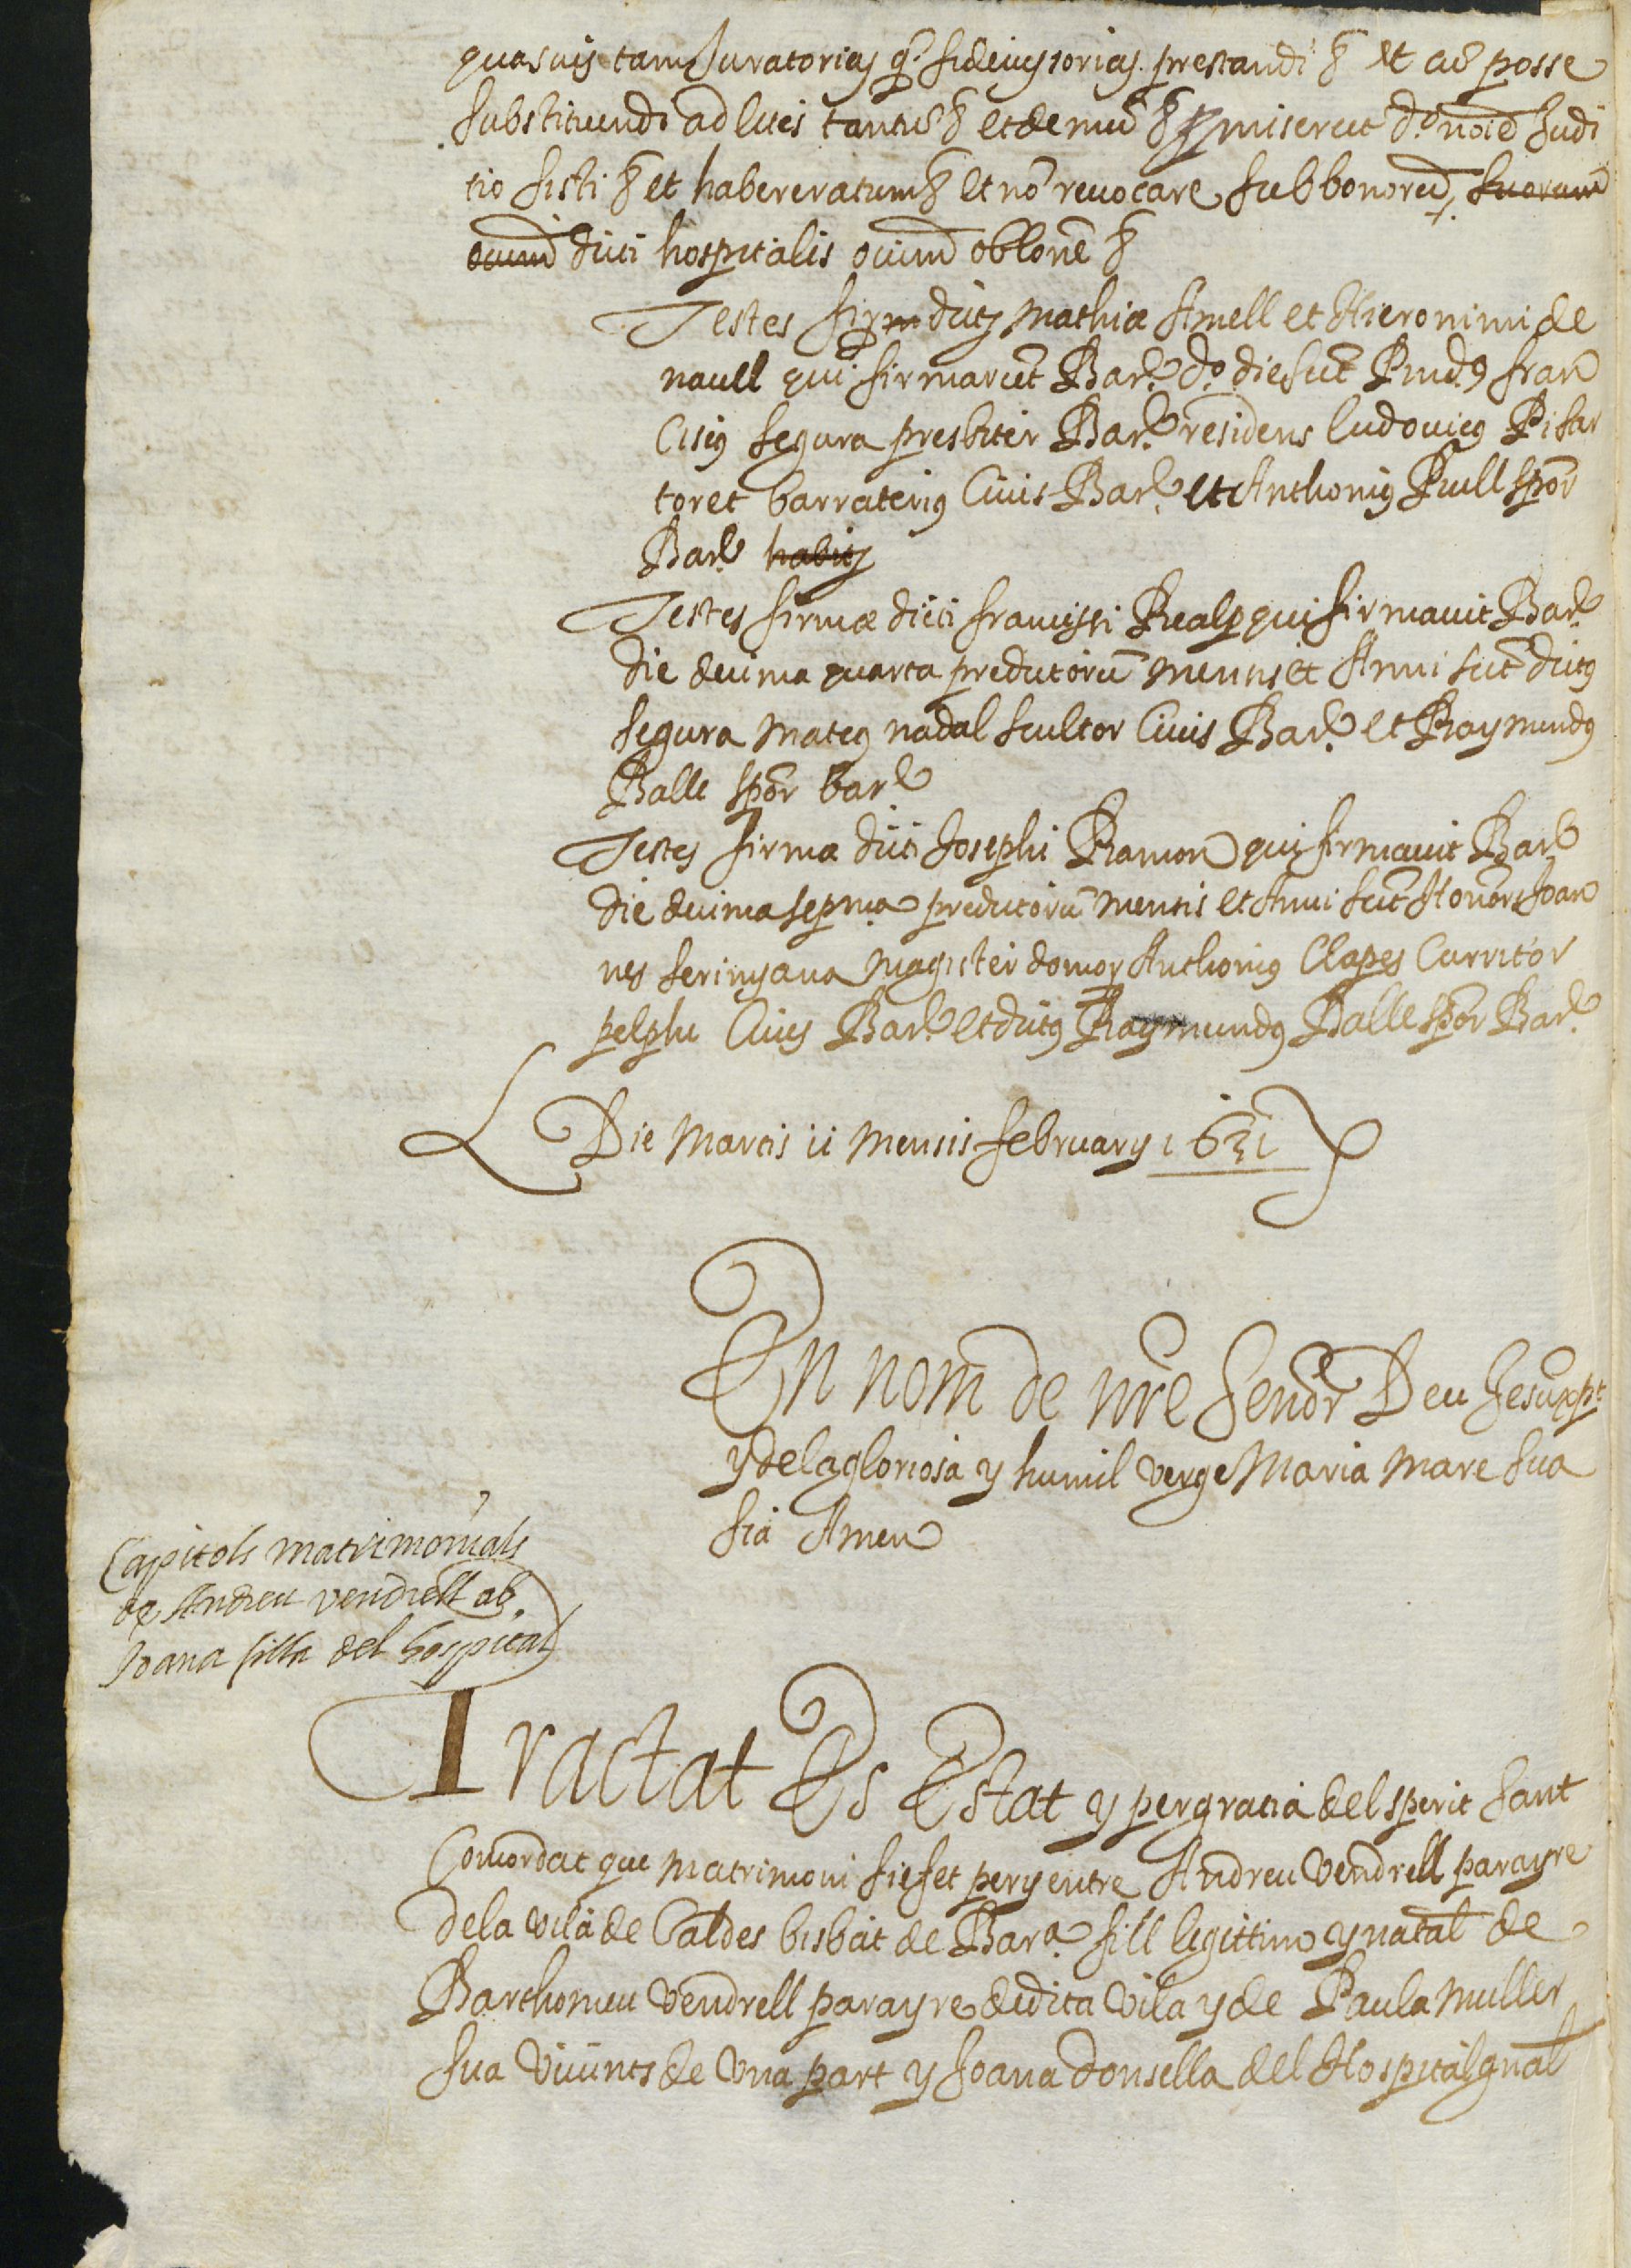 quasuis tam Juratorias q̃. fideiussorias. prestandi & et ac̃ posse
substituendi ad lites tantũ & et demũ & promiserut d.º noiẽ Judi
tio sisti & et habere ratum & et nõ reuocare sub bonorũ, suorum
oium dicti hospitalis oium oblonẽ &
Testes firm dictȝ Mathiæ Amell et Hieronimi de
naull qui firmarũt Barᵉ d.º die sũt Rndꝰ fran
Cisꝰ Segura presbiter Barᵉ residens ludouicꝰ Pisar
toret barraterꝰ Ciuis Barᵉ et Anthoniꝰ Rull spor
Barᵉ habitȝ
Testes firmæ dicti francissi Realp qui firmauit Barᵉ
die decima quarta predictorũ mensis et Anni sũt dictꝰ
Segura Mateꝰ nadal scultor Ciuis Barᵉ et Raymundꝰ
Balle spor barᵉ
Testes firmæ dicti Josephi Ramon qui firmauit Barᵉ
die decima sepma predictorũ mensis et Anni sũt Honor Joan
nes serinyana Magister domoꝝ Anthoniꝰ Clapes Curritor
pelphi Ciuis Barᵉ et dictꝰ Raymundꝰ Balle spor Barᵉ
Die Martis ii mensis february 1631
En nom de nr̃e Senor Deu Jesuxpt
y dela gloriosa y humil verge Maria mare sua
sia Amen
Capitols matrimonials
de Andreu vendrell ab
Joana filla del hospital
Tractat Es Estat y per gratia del sperit sant
Concordat que matrimoni sie fet per y entre Andreu Vendrell parayre
dela vila de Caldes bisbat de Barª. fill legittim y natal de
Barthomeu Vendrell parayre de dita vila y de Paula muller
sua viuints de vna part y Joana donsella del Hospital gnal